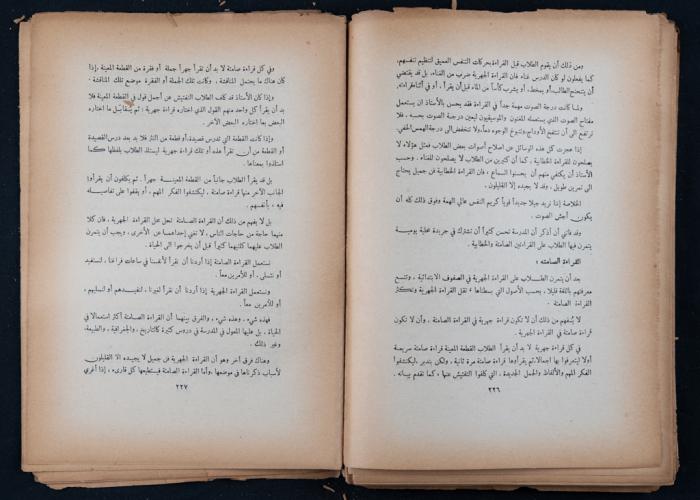 ومن ذلك أن يقوم الطلاب قبل القراءة بحركات التنفس العميق لتنظيم تنفسهم،
كما يفعلون لو كان الدرس غناء فان القراءة الجهرية ضرب من الغناء، بل قد يقتضي
أن يتنحنح الطالب أو يمخط، أو يشرب كأساً من الماء قبل أن يقرأ، أو في أثناء قراءته.
ولما كانت درجة الصوت مهمة جداً في القراءة فقد يحسن بالأستاذ ان يستعمل
مفتاح الصوت الذي يستعمله المغنون والموسيقيون ليعين درجة الصوت بحسبه، فلا
ترتفع الى أن تنتفخ الأوداج وتتنوع الوجوه دماً، ولا تنخفض الى درجة الهمس الخفي.
إذا عجزت كل هذه الوسائل عن اصلاح أصوات بعض الطلاب فمثل هؤلاء لا
يصلحون للقراءة الخطابية. كما أن كثيرين من الطلاب لا يصلحون للغناء. وحسب
الأستاذ أن يكتفي منهم أن يحسنوا السماع، فان القراءة الخطابية فن جميل يحتاج
الى تمرين طويل. وقد لا يجيده إلا القليلون.
الخلاصة إذا نريد جيلا جديداً قوياً كريم النفس عالي الهمة وفوق ذلك كله أن
يكون أجش الصوت.
وقد فاتني أن أذكر أن المدرسة تحسن كثيراً أن تشترك في جريدة محلية يومية
يتمرن فيها الطلاب على القراءتين الصامتة والخطابية.
القراءة الصامتة:
بعد أن يتمرن الطلاب على القراءة الجهرية في الصفوف الابتدائية، وتتسع
معرفتهم باللغة قليلا، بحسب الأصول التي بسطناها، تقل القراءة الجهرية وتكثر
القراءة الصامتة.
لا يفهم من ذلك أن لا تكون قراءة جهرية في القراءة الصامتة، وأن لا تكون
قراءة صامتة في القراءة الجهرية.
في كل قراءة جهرية لا بد أن يقرأ الطلاب القطعة المعينة قراءة صامتة سريعة
أولا ليتعرفوا بها اجمالا، ثم يقرأوها قراءة صامتة مرة ثانية، ولكن بتدبر، ليكتشفوا
الفكر المهم والألفاظ والجمل الجديدة، التي كلفوا التفتيش عنها، كما تقدم بيانه.
٢٢٦
وفي كل قراءة صامتة لا بد أن نقرأ جهراً جملة أو فقرة من القطعة المعينة، إذا
كان هناك ما يحتمل المناقشة. وكانت تلك الجملة أو الفقرة موضع تلك المناقشة.
وإذا كان الأستاذ قد كلف الطلاب التفتيش عن أجمل قول في القطعة المعينة فلا
بد أن يقرأ كل واحد منهم القول الذي اختاره قراءة جهرية؛ ثم يتقابل ما اختاره
البعض بما اختاره البعض الآخر.
وإذا كانت القطعة التي تدرس قصيدة، أو قطعة من النثر فلا بد بعد درس القصيدة
أو القطعة من أن تقرأ هذه أو تلك قراءة جهرية ليستلذ الطلاب بلفظها كما
استلذوا بمعناها.
بل قد يقرأ الطلاب جانباً من القطعة المعينة جهراً. ثم يكلفون أن يقرأوا
الجانب الآخر منها قراءة صامتة، ليكتشفوا الفكر المهم، أو يقفوا على تفاصيله
فيه، بأنفسهم.
بل لا يفهم من ذلك أن القراءة الصامتة تحل محل القراءة الجهرية، فان كلا
منهما حاجة من حاجات الناس، لا تغني إحداهما عن الأخرى، ويجب أن يتمرن
الطلاب عليهما كلتيهما كثيراً قبل أن يخرجوا الى الحياة.
نستعمل القراءة الصامتة إذا أردنا أن نقرأ لأنفسنا في ساعات فراغنا، لنستفيد
أو نتسلى، أو للأمرين معاً.
ونستعمل القراءة الجهرية إذا أردنا أن نقرأ لغيرنا، لنفيدهم أو لنسليهم،
أو للأمرين معاً.
فهذه شيء، وهذه شيء، والفرق بينهما أن القراءة الصامتة أكثر استعمالا في
الحياة، بل عليها المعول في المدرسة في دروس كثيرة كالتاريخ، والجغرافية، والطبيعة،
وغير ذلك.
وهناك فرق آخر وهو أن القراءة الجهرية فن جميل لا يجيده الا القليلون
لأسباب ذكرناها في موضعها، وأما القراءة الصامتة فيستطيعها كل قارىء، إذا أغري
٢٢٧